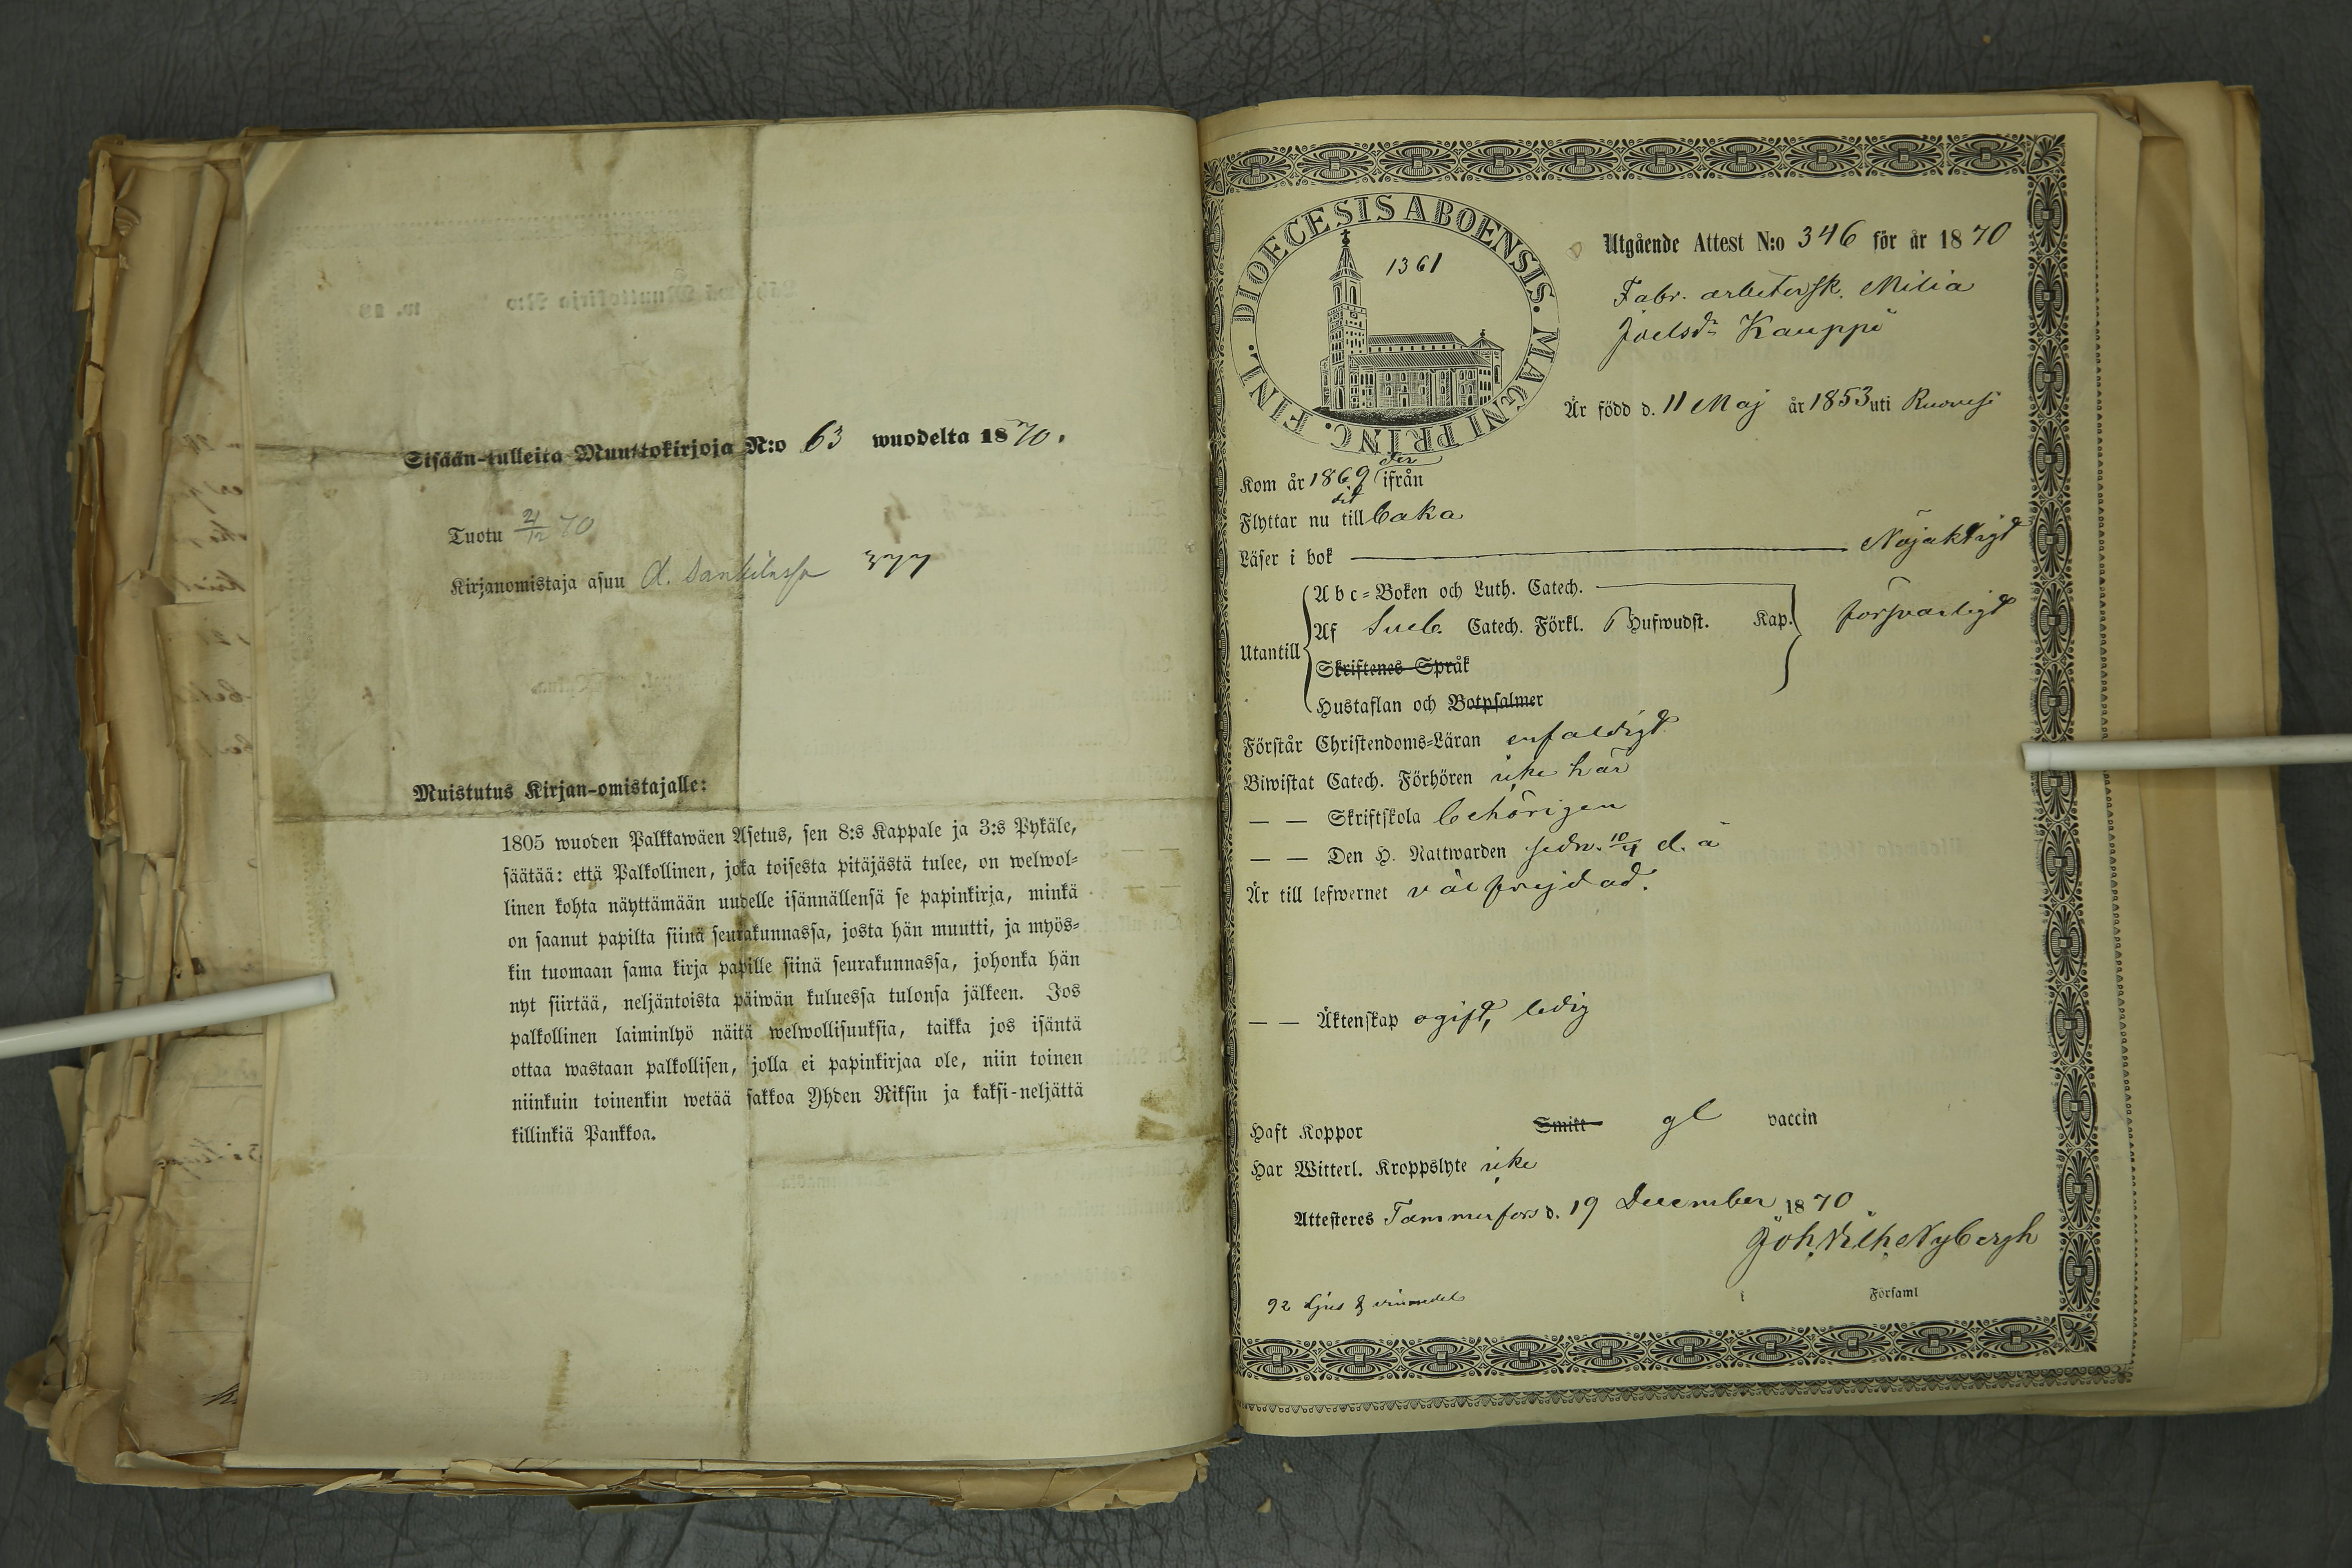 Sisään-tulleita Muuttokirjoja N:o 63 wuodelta 1870.
Tuotu 21/12 70
Kirjanomistaja asuu 377
Muistutus Kirjan-omistajalle:
1805 wuoden Palkkawäen Asetus, sen 8:s Kappale ja 3:s Pykäle,
säätää: että Palkollinen, joka toisesta pitäjästä tulee, on welwol-
linen kohta näyttämään uudelle isännällensä se papinkirja, minkä
on saanut papilta siinä seurakunnassa, josta hän muutti, ja myös-
kin tuomaan sama kirja papille siinä seurakunnassa, johonka hän
nyt siirtää, neljäntoista päiwän kuluessa tulonsa jälkeen. Jos
palkollinen laiminlyö näitä welwollisuuksia, taikka jos isäntä
ottaa wastaan palkollisen, jolla ei papinkirjaa ole, niin toinen
niinkuin toinenkin wetää sakkoa Yhden Riksin ja kaksi-neljättä
killinkiä Pankkoa.
DIOECESIS ABOENSIS. MAGNI PRINC. FINL.
1361
Utgående Attest N:o 346 för år 1870
Fabr. arbetersk. Milia
Joelsdr Kauppi
Är född d. 11 Maj år 1853 uti Ruovesi
Kom år 1869 ifrån der
Flyttar nu till baka dit
Läser i bok Nöjaktigt
Utantill
Abc-Boken och Luth. Catech.
Af Sveb. Catech. Förkl. 6 Hufwudst. Kap. försvarligt
Skriftenes Språk
Hustaflan och Botpsalmer
Förstår Christendoms-Läran enfaldigt
Biwistat Catech. Förhören icke här
— — Skriftskola behörigen
— — Den H. Nattwarden sedn. 10/4 d. å
Är till lefwernet välfrejdad.
— — Äktenskap ogift, ledig
Haft Koppor Smitt gl vaccin
Har Witterl. Kroppslyte icke
Attesteres Tammerfors d. 19 December 1870
Joh. Vilh. Nybergh
92 Ljus &
Församl